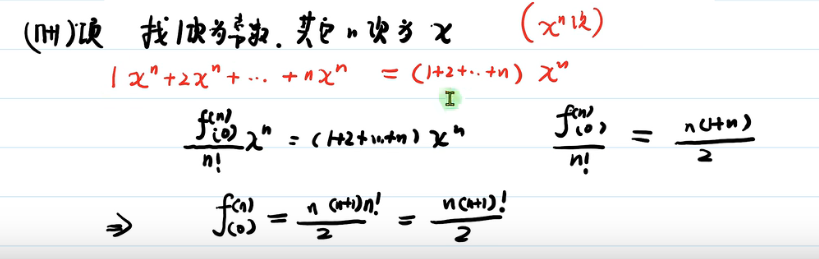 (n+1)项 找1次为常数.其它n次为x (xⁿ次)
1xⁿ+2xⁿ+...+nxⁿ = (1+2+..+n) xⁿ
f⁽ⁿ⁾(0)/n! xⁿ = (1+2+...+n) xⁿ f⁽ⁿ⁾(0)/n! = n(1+n)/2
⇒ f⁽ⁿ⁾(0) = n(n+1)n!/2 = n(n+1)!/2